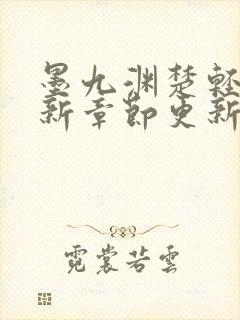 墨九渊楚軽
新章節更新
霓裳若雲